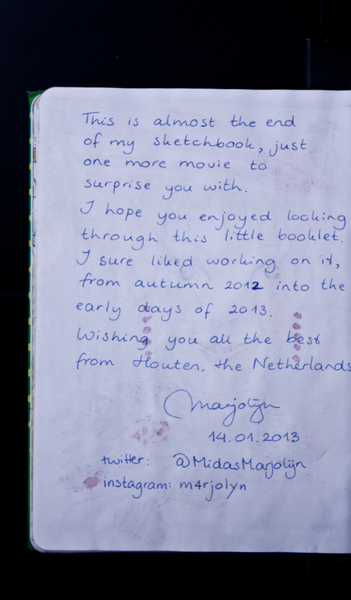 This is almost the end
of my sketchbook, just
one more movie to
surprise you with.
I hope you enjoyed looking
through this little booklet.
I sure liked working on it,
from autumn 2012 into the
early days of 2013.
Wishing you all the best
from Houten, the Netherlands
Marjolijn
14.01.2013
twitter: @MidasMarjolijn
instagram: m4rjolyn